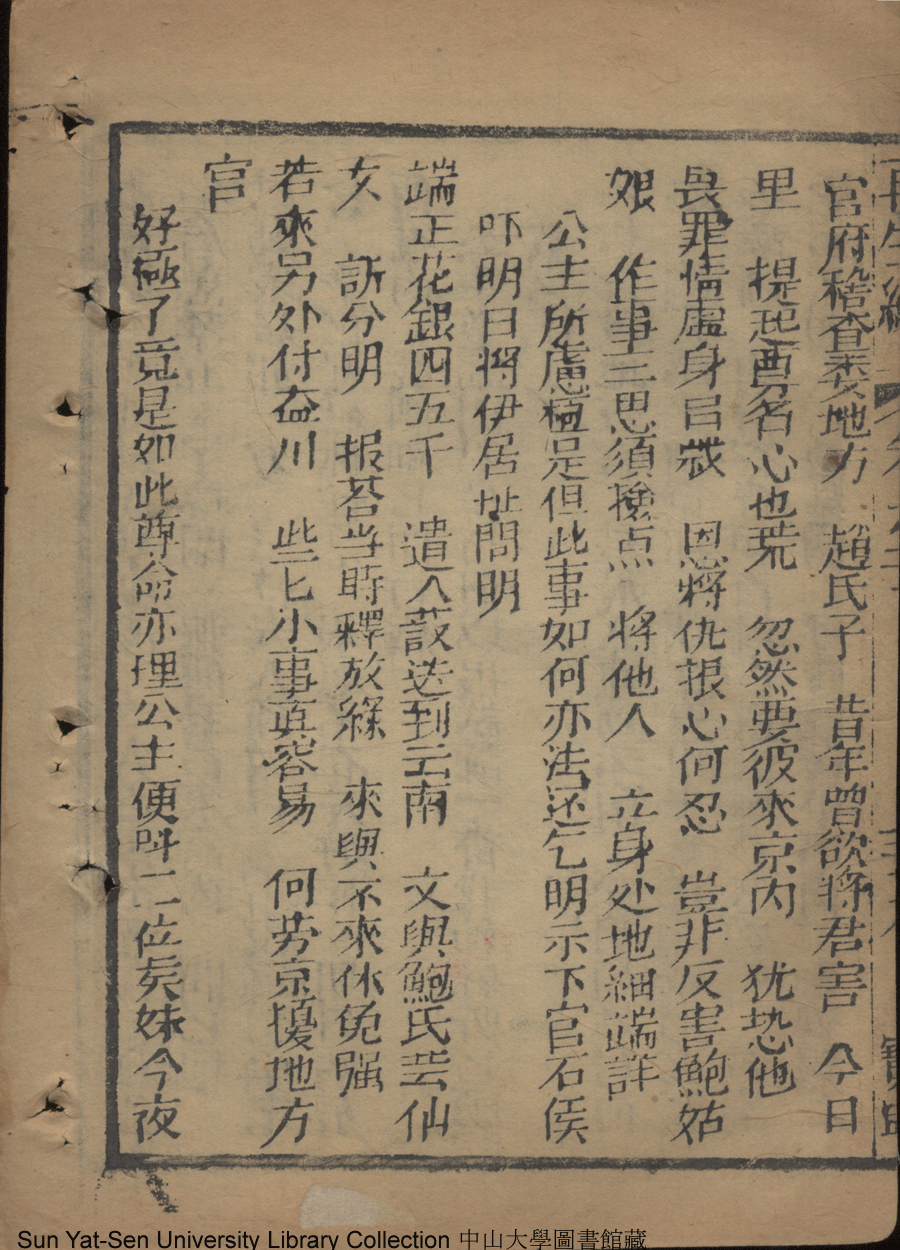 再生緣
官府稽查委地方 趙氏子 昔年曾欲將君害 今日
里 提起酉名心也荒 忽然要彼來京內 犹恐他
畏罪情虛身自戕 恩將仇报心何忍 豈非反害鮑姑
娘 作事三思須撿点 將他人 立身处地細端詳
公主所慮極是但此事如何亦法还乞明示下官石侯
吓明日將伊居址問明
端正花銀四五千 遣人設选到云南 文與鮑氏芸仙
女 訴分明 报荅当時釋放緣 來與不來休免强
若來另外付益川 些匕小事眞容易 何劳京擾地方
官
好極了竟是如此尊命亦理公主便呌二位矣妹今夜
Sun Yat-Sen University Library Collection 中山大學圖書館藏